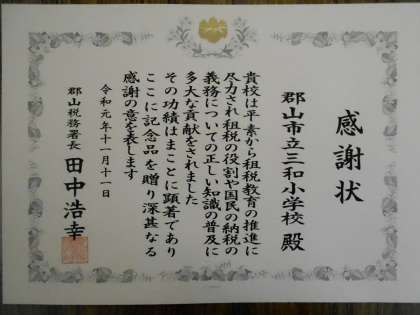 感謝状
郡山市立三和小学校 殿
貴校は平素から租税教育の推進に
尽力され租税の役割や国民の納税の
義務についての正しい知識の普及に
多大な貢献をされました
その功績はまことに顕著であり
ここに記念品を贈り深甚なる
感謝の意を表します
令和元年十一月十一日
郡山税務署長 田中浩幸